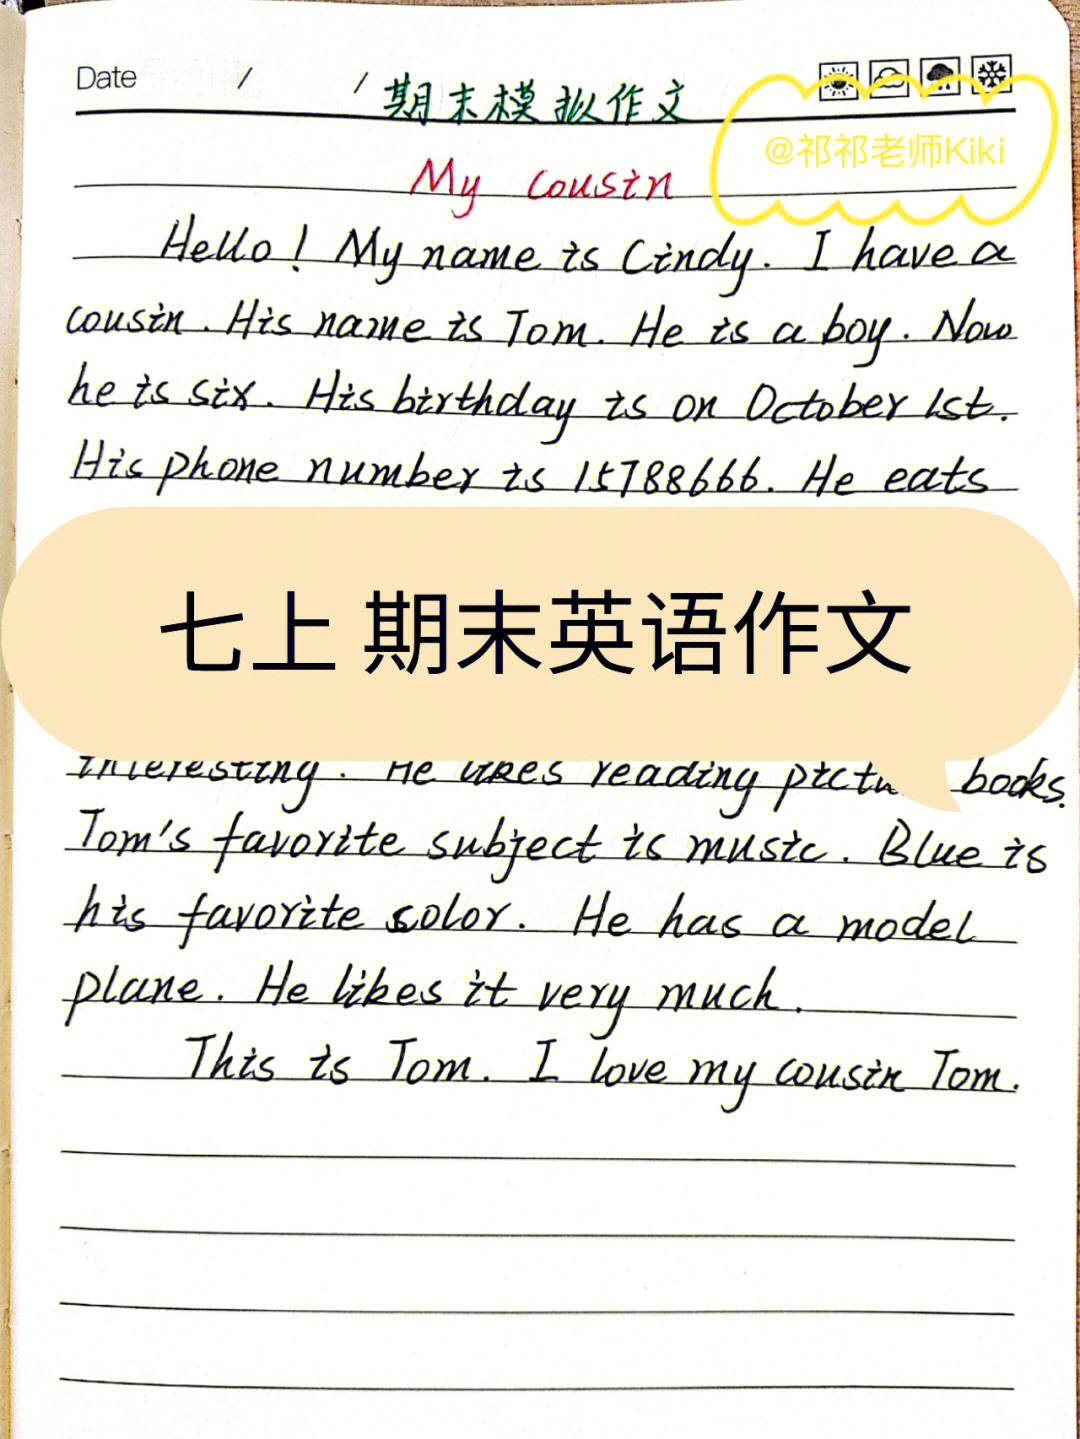 Date / /
期末模拟作文
@祁祁老师Kiki
My cousin
Hello! My name is Cindy. I have a
cousin. His name is Tom. He is a boy. Now
he is six. His birthday is on October 1st.
His phone number is 15788666. He eats
七上 期末英语作文
interesting. He likes reading books.
Tom's favorite subject is music. Blue is
his favorite color. He has a model
plane. He likes it very much.
This is Tom. I love my cousin Tom.